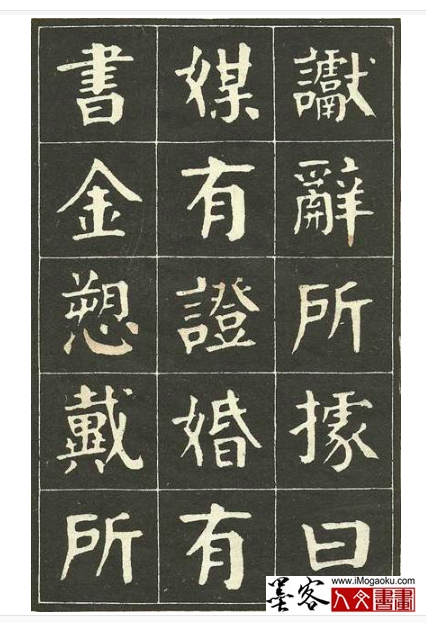 讞辭所據曰
媒有證婚有
書金愬戴所
墨客
www.iMogaoku.com
人文書畫